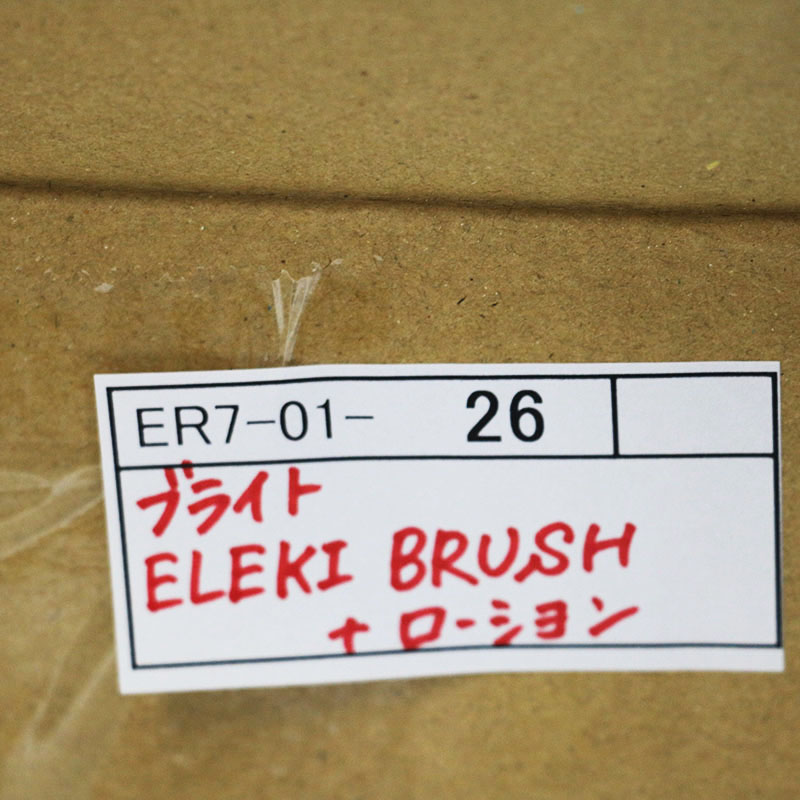 ER7-01- 26
ブライト
ELEKI BRUSH
+ ローション